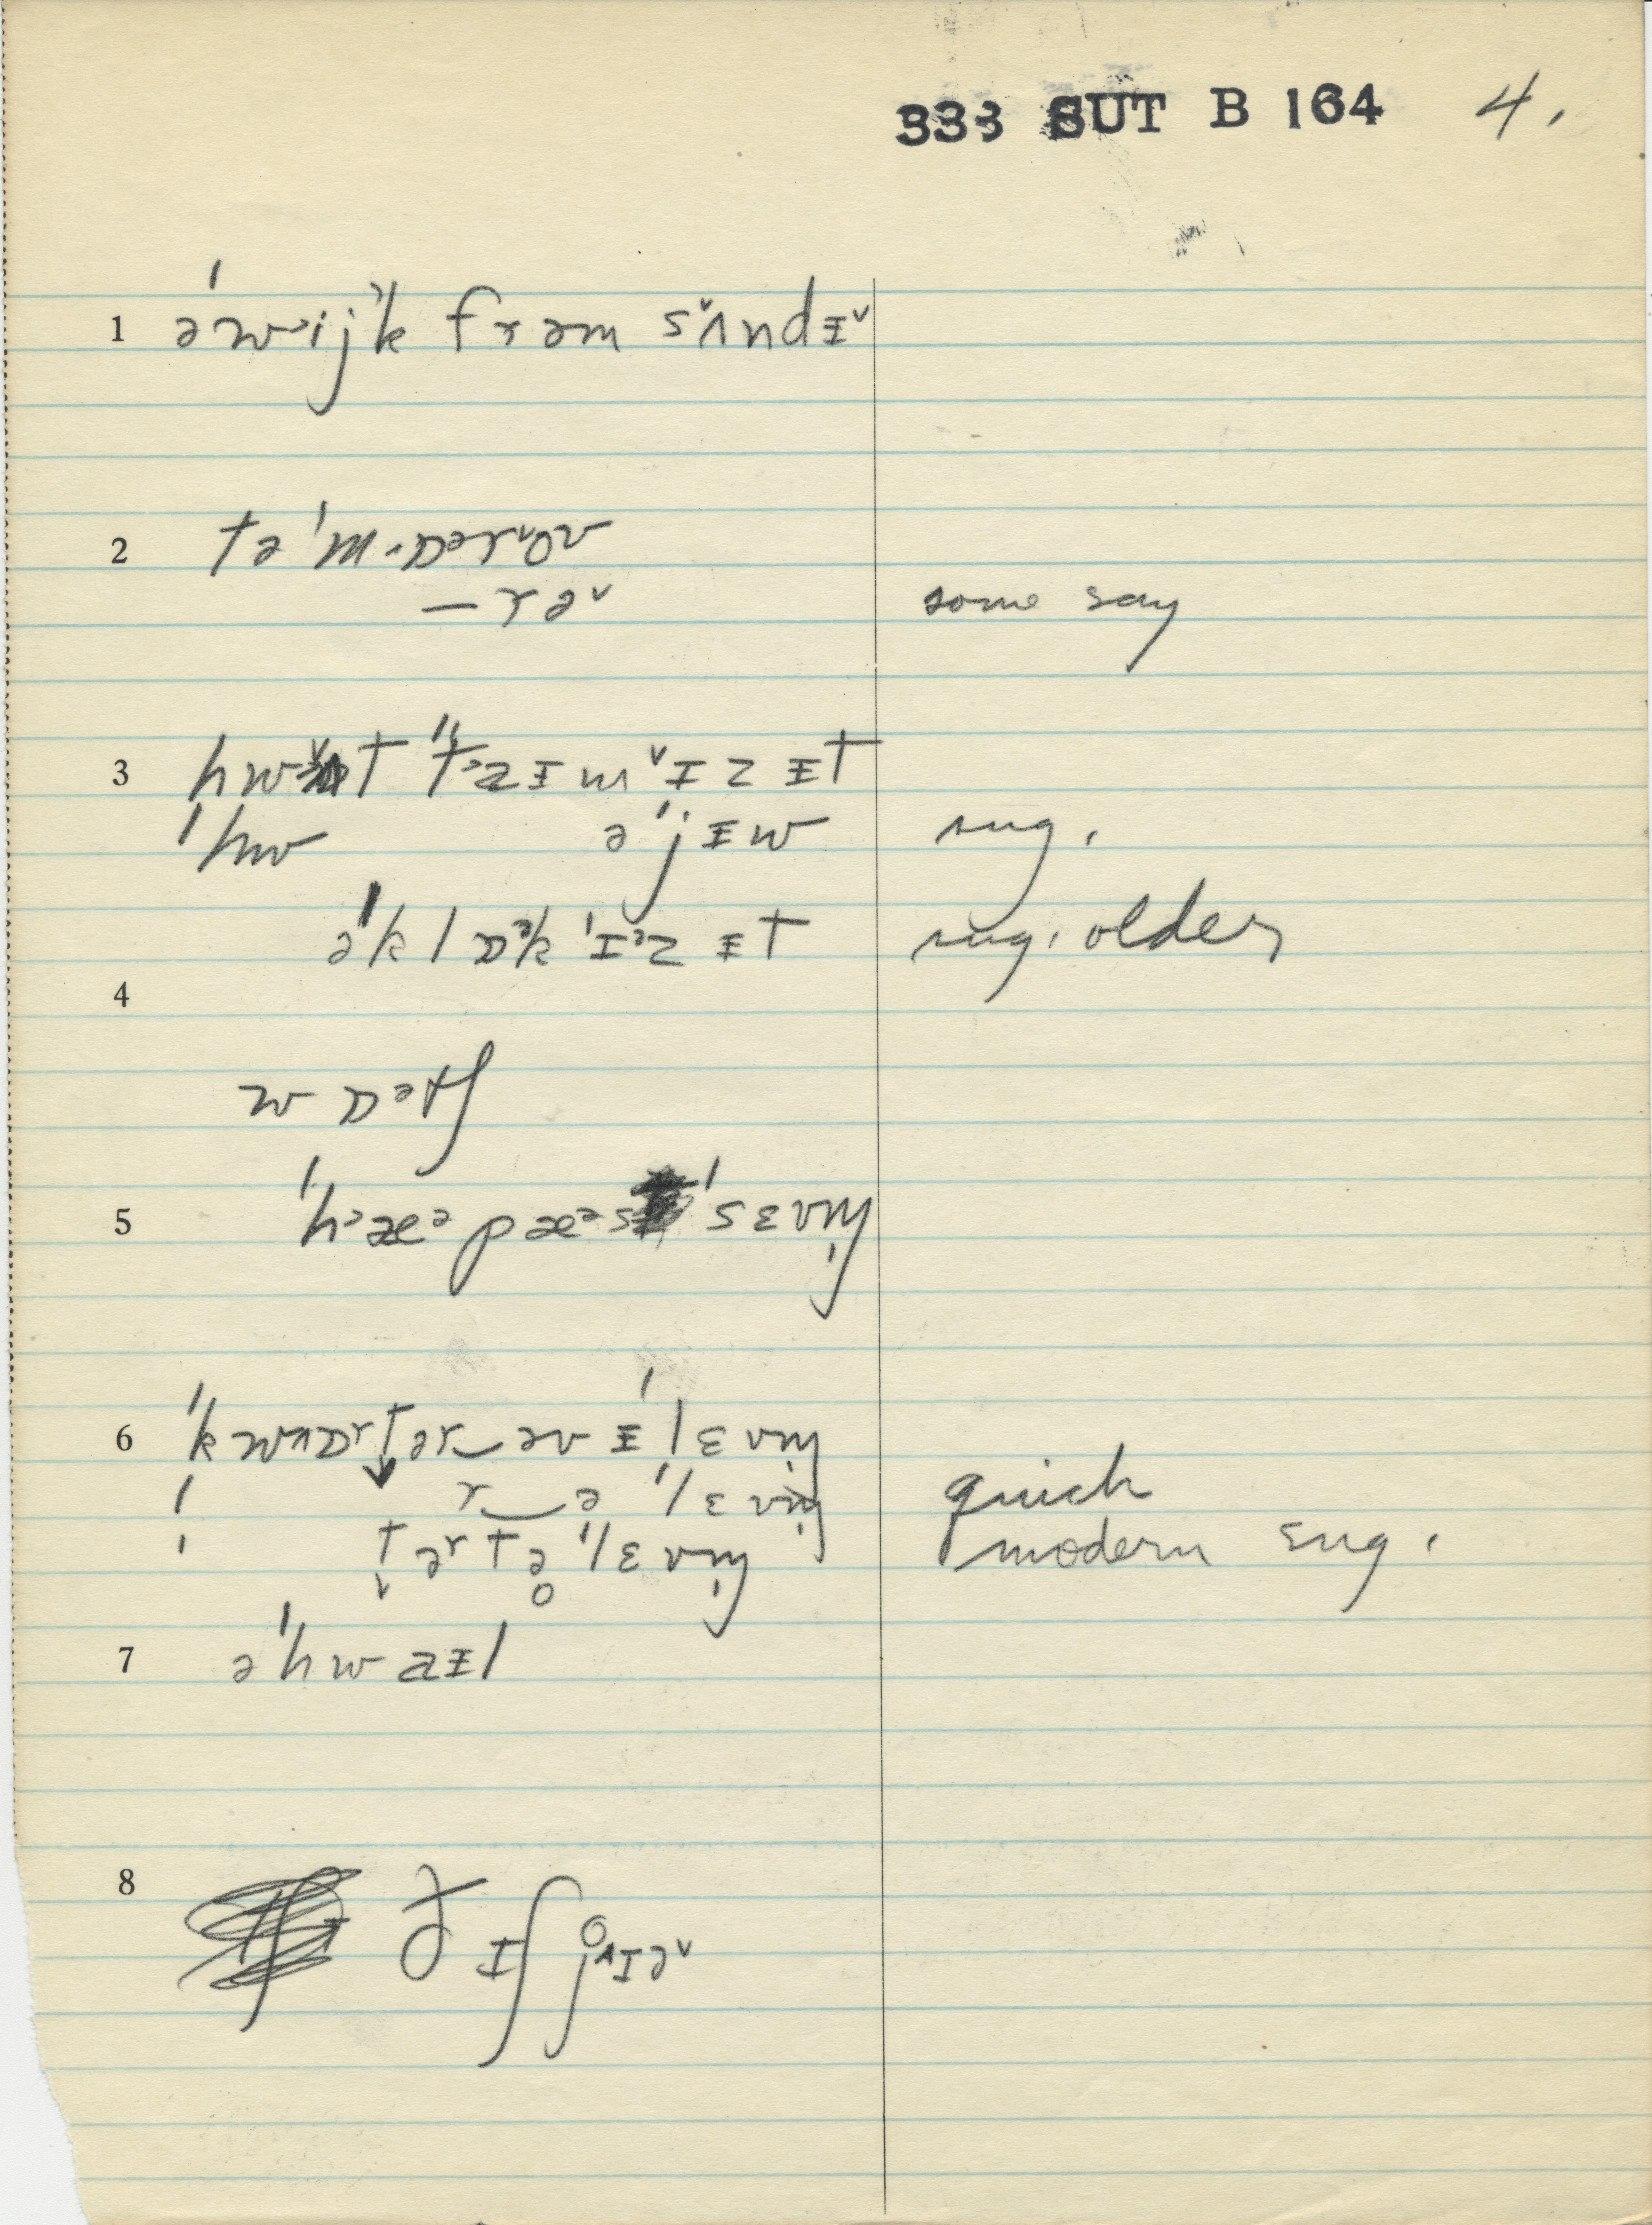 333 SUT B 164 4.
1 ə'wijk frəm sʌndɪ
2 tə'mɒəroʊ
— rə some say
3 hwɒt taɪm ɪz ɪt
'hw ə'jɪw sug.
ə'klɒk ɪz ɪt sug. older
4
wɒətʃ
5 'hæəpæəs 'sɛvm̩
6 'kwɒrtər‿əv ɪ'lɛvm̩
r‿ə 'lɛvm̩ quick
tərtə 'lɛvm̩ modern sug.
7 ə'hwaɪl
8 ðɪʃ jɪə